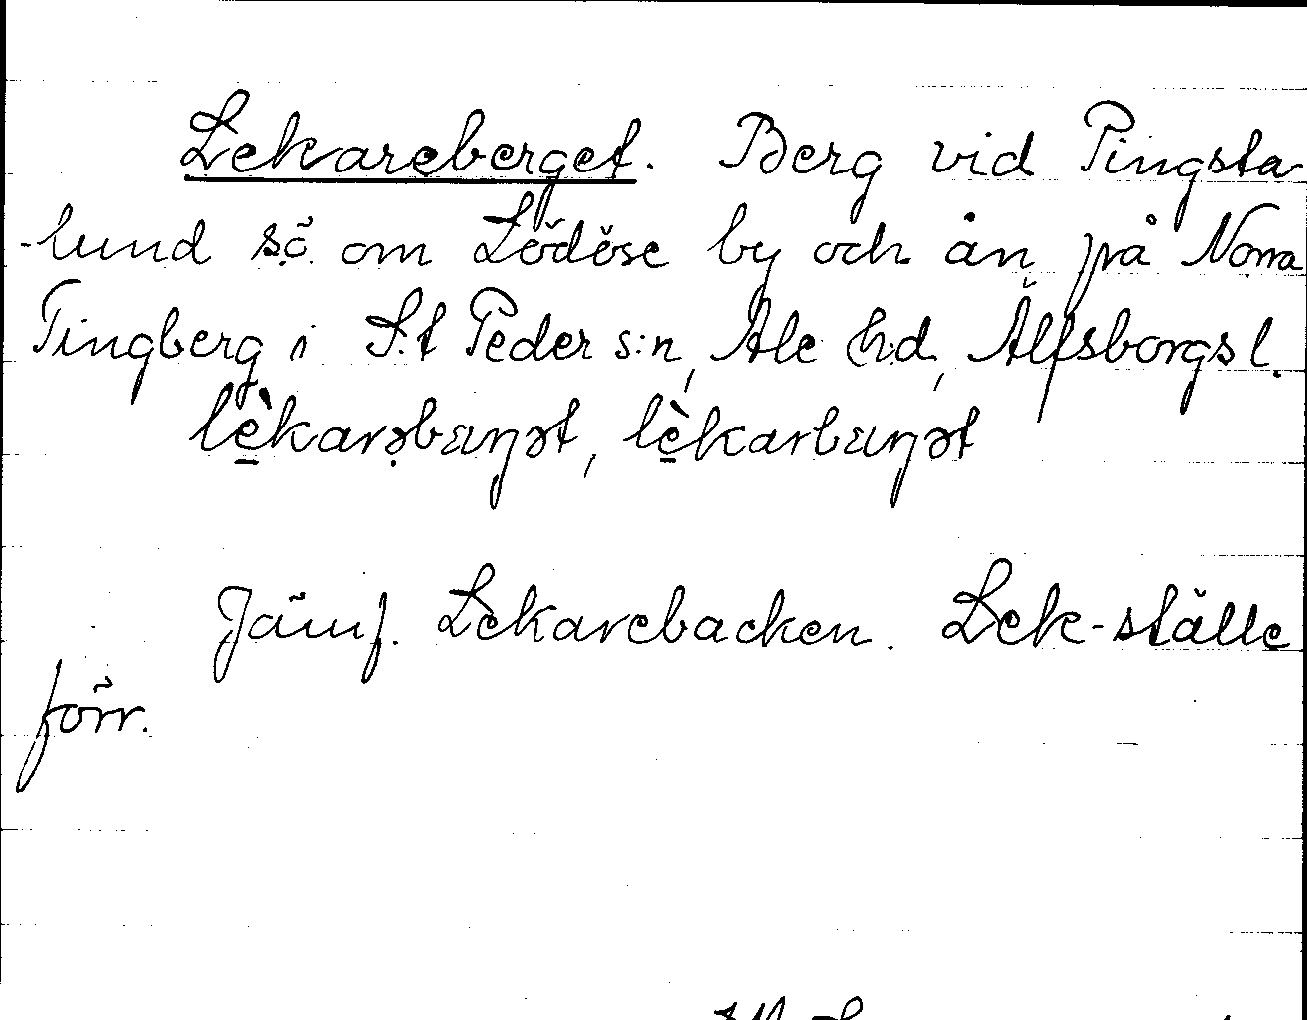 Lekareberget. Berg vid Pingsta-
-lund s.ö. om Lödöse by och ån på Norra
Tingberg i S:t Peder s:n, Ale hd, Älfsborgs l.
lèkarəbæŋət, lèkarbæŋət
Jämf. Lekarebacken. Lek-ställe
förr.